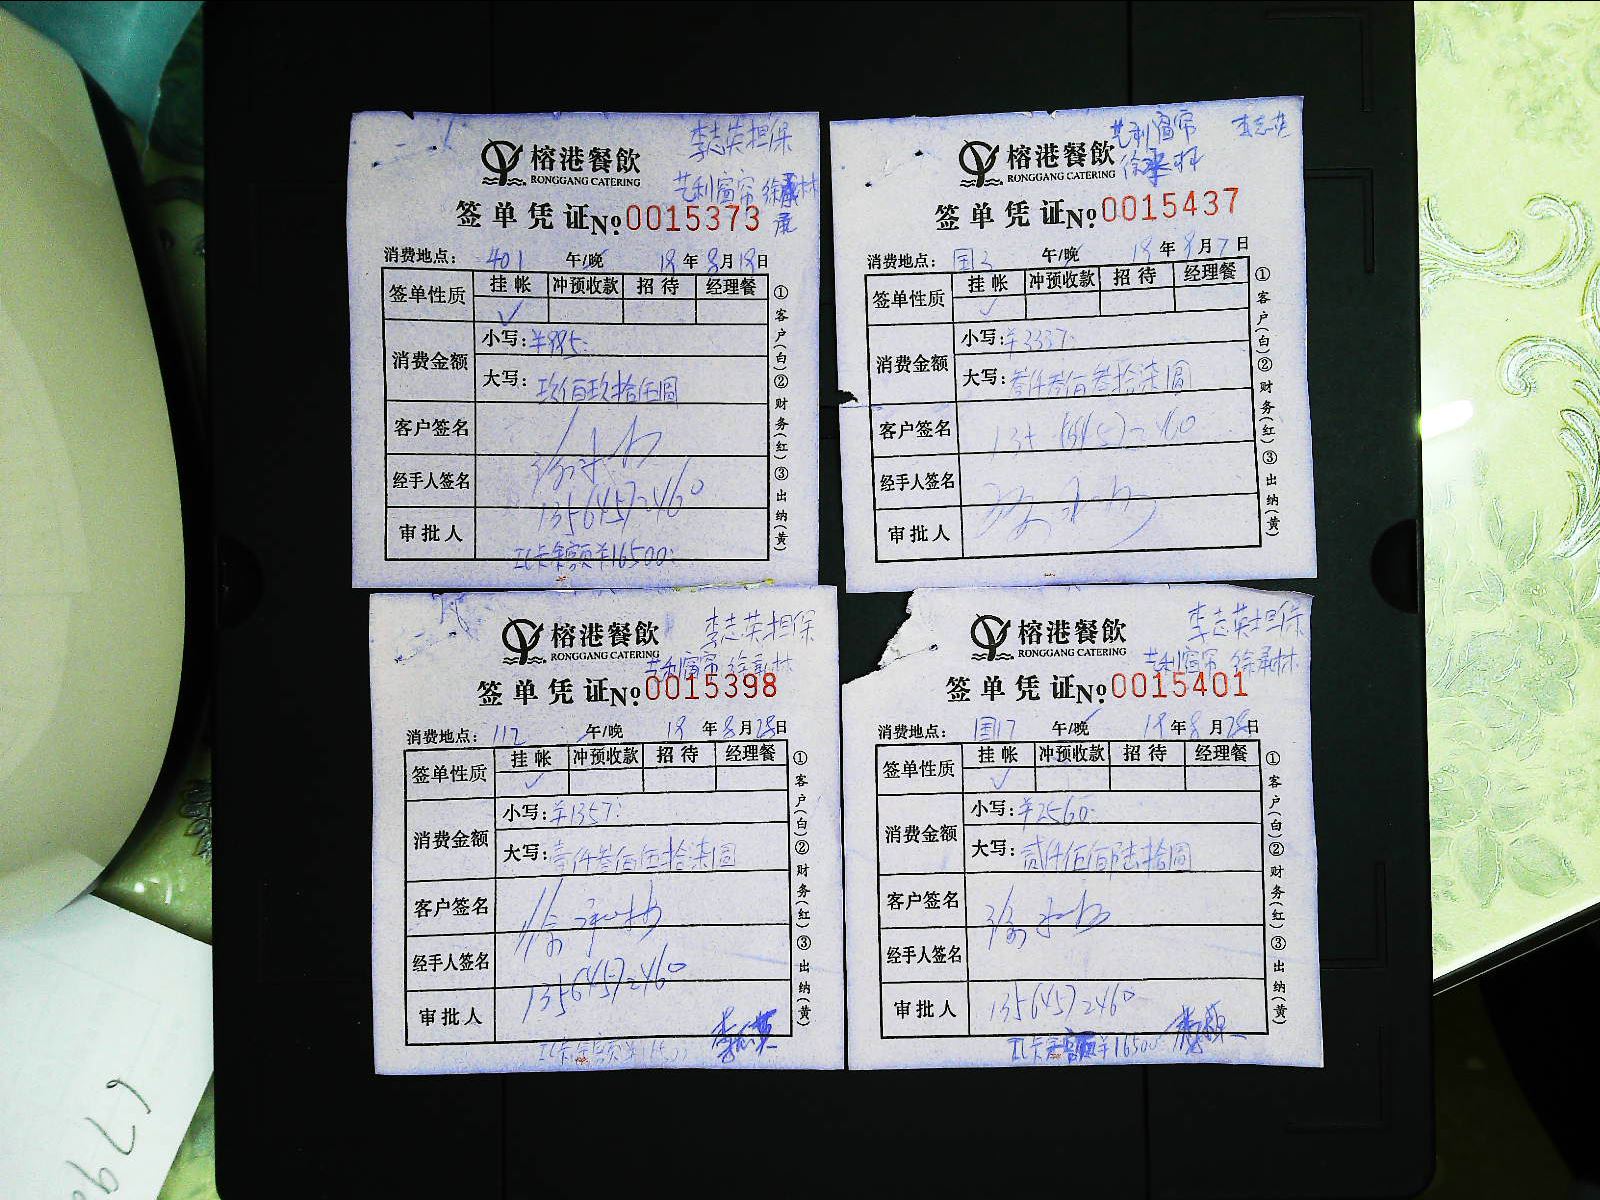 李志英担保
榕港餐飲
RONGGANG CATERING
艺利窗帘 徐承林
承
签单凭证 №0015373
消费地点: 401 午/晚 18年8月18日
签单性质 挂帐 冲预收款 招待 经理餐
✓
消费金额 小写:¥995.
大写: 玖佰玖拾伍圆
客户签名
经手人签名
13564572460
审批人
IC卡余额¥16500.
①客户(白)②财务(红)③出纳(黄)
艺利窗帘 李志英
徐承林
榕港餐飲
RONGGANG CATERING
签单凭证 №0015437
消费地点: 国3 午/晚 18年9月7日
签单性质 挂帐 冲预收款 招待 经理餐
✓
消费金额 小写:¥3337.
大写: 叁仟叁佰叁拾柒圆
客户签名 13564572460
经手人签名
审批人
①客户(白)②财务(红)③出纳(黄)
李志英担保
榕港餐飲
RONGGANG CATERING
艺利窗帘 徐承林
签单凭证 №0015398
消费地点: 112 午/晚 18年8月28日
签单性质 挂帐 冲预收款 招待 经理餐
✓
消费金额 小写:¥1357.
大写: 壹仟叁佰伍拾柒圆
客户签名 徐承林
经手人签名
13564572460
审批人
李志英
IC卡余额¥16500
①客户(白)②财务(红)③出纳(黄)
李志英担保
榕港餐飲
RONGGANG CATERING
艺利窗帘 徐承林
签单凭证 №0015401
消费地点: 国17 午/晚 18年8月28日
签单性质 挂帐 冲预收款 招待 经理餐
✓
消费金额 小写:¥2560.
大写: 贰仟伍佰陆拾圆
客户签名
经手人签名
审批人 13564572460
IC卡余额¥16500
①客户(白)②财务(红)③出纳(黄)